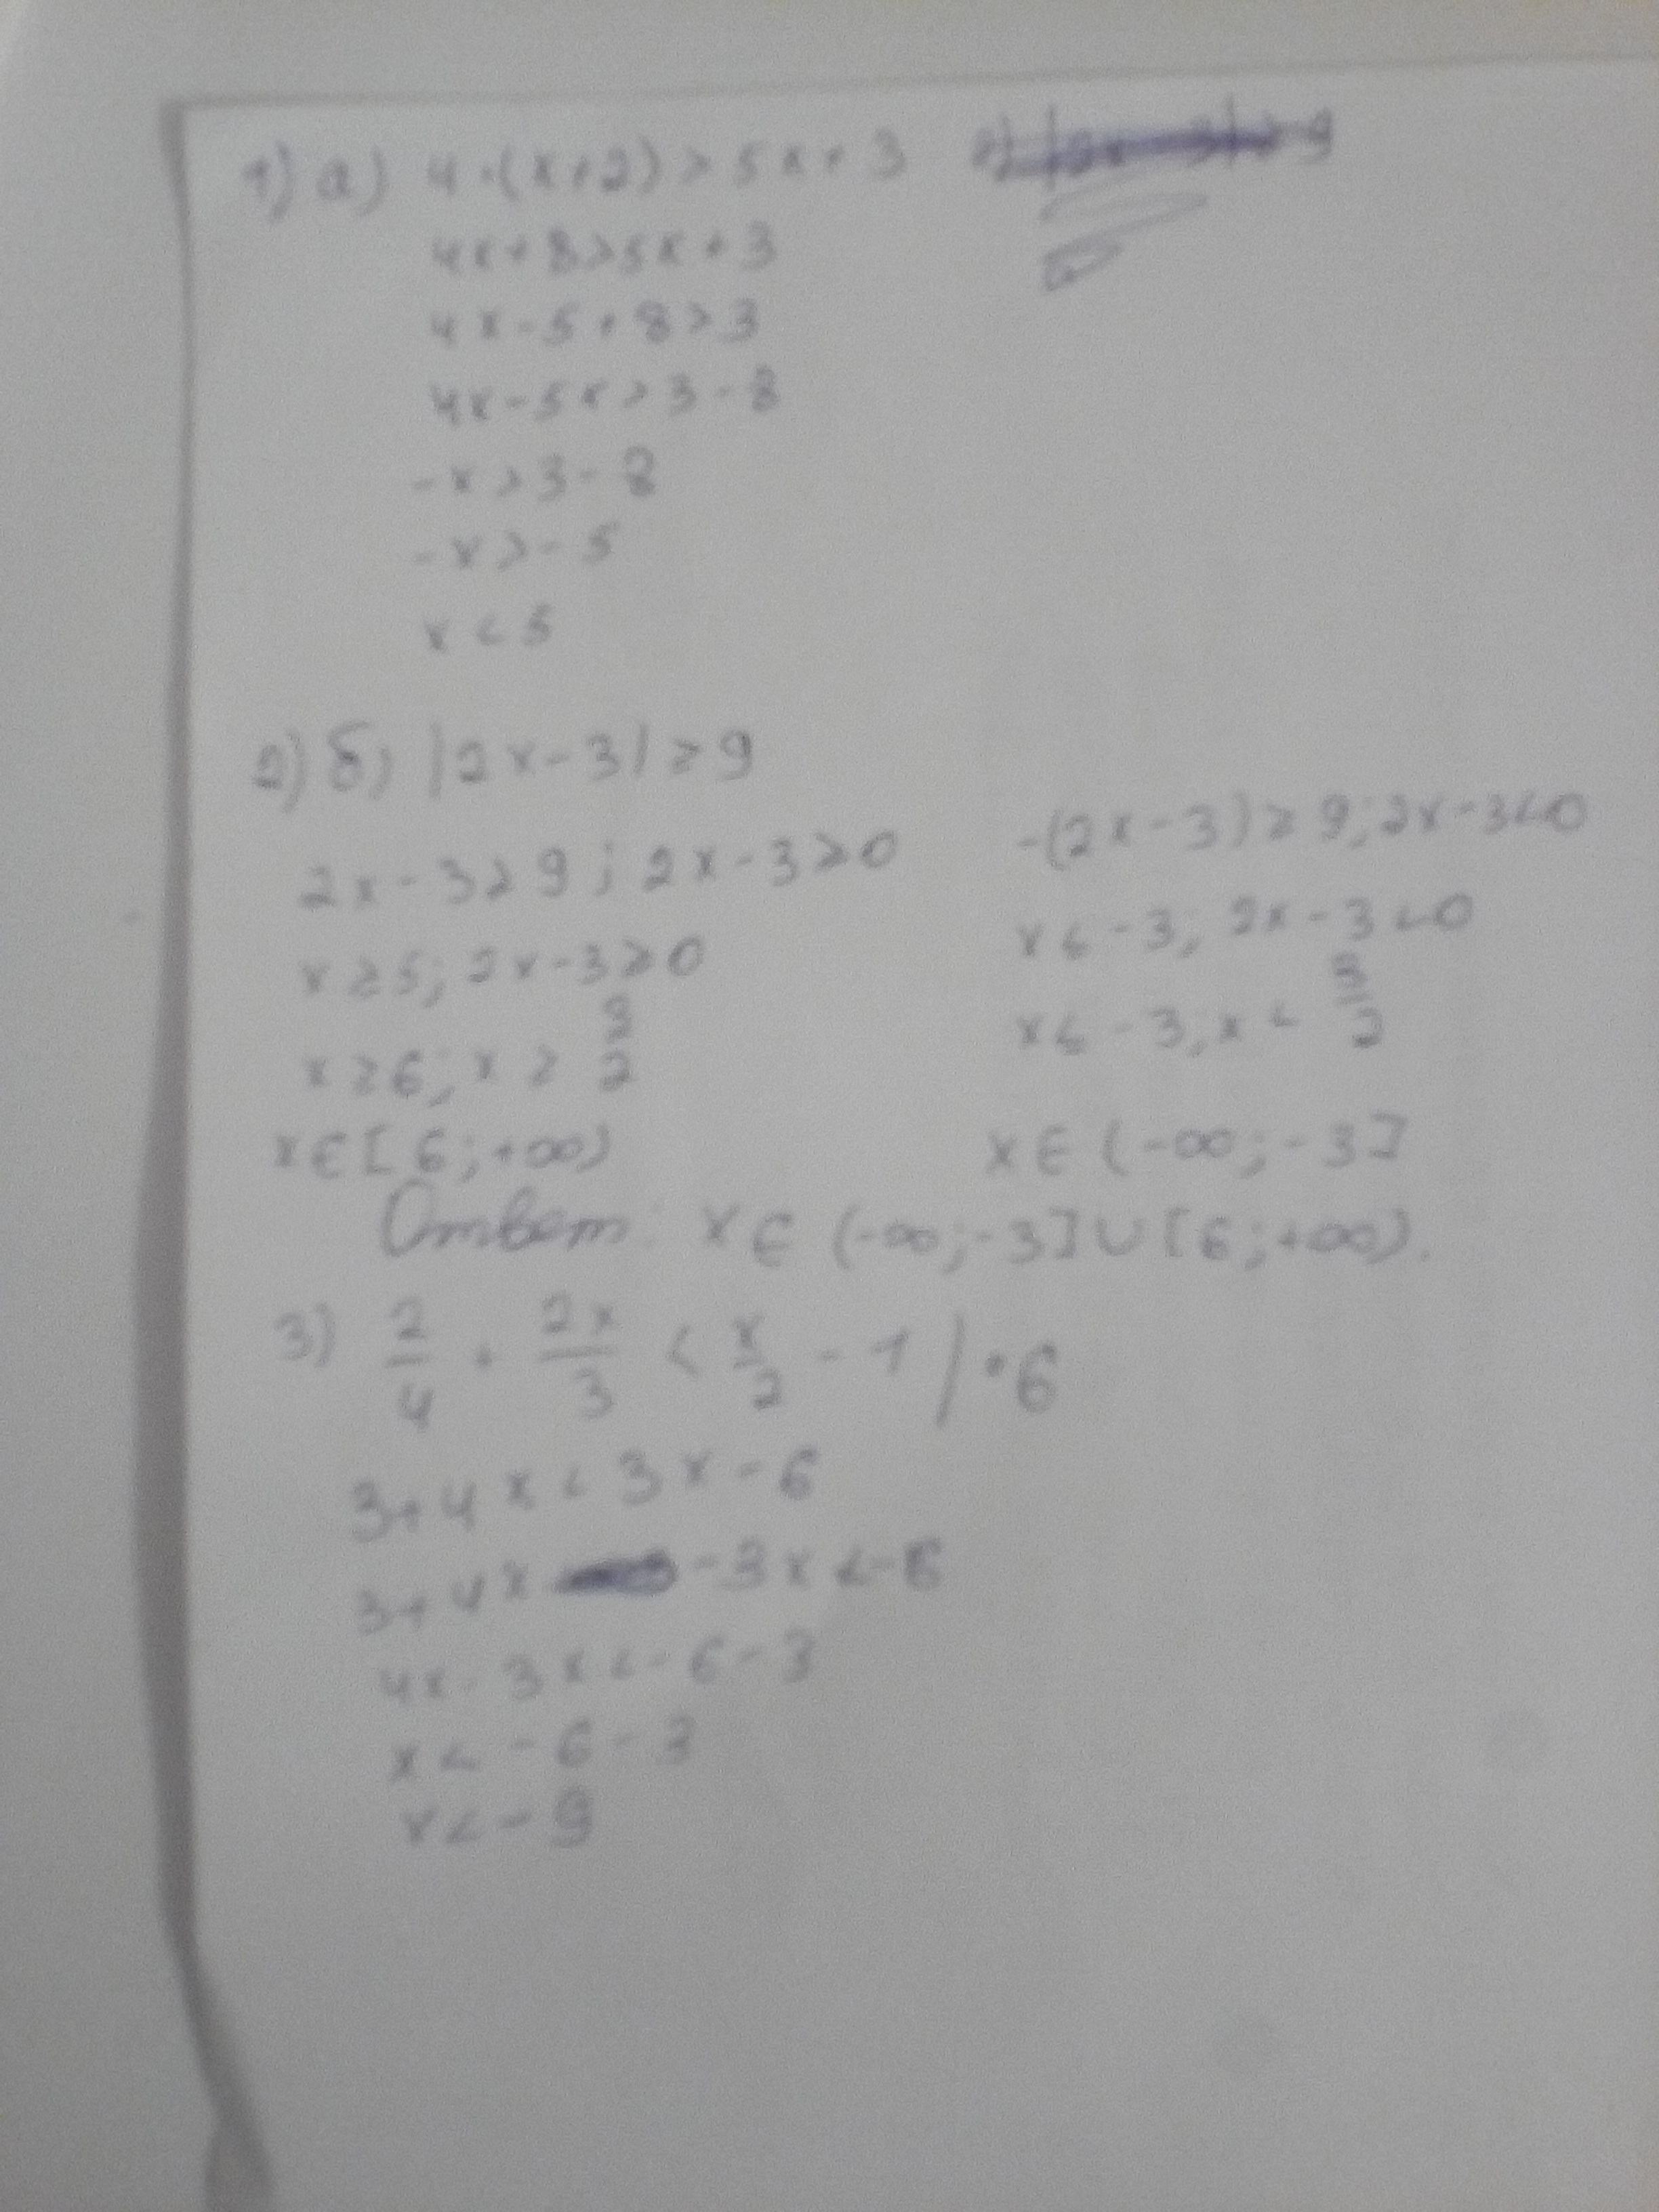 1) а) 4·(x+2)>5x+3
4x+8>5x+3
4x-5+8>3
4x-5x>3-8
-x>3-8
-x>-5
x<5
2) б) |2x-3|≥9
2x-3≥9; 2x-3≥0
x≥5; 2x-3≥0
x≥6; x≥3/2
x∈[6;+∞)
-(2x-3)≥9; 2x-3<0
x≤-3; 2x-3<0
x≤-3; x<3/2
x∈(-∞;-3]
Ответ: x∈(-∞;-3]∪[6;+∞).
3) 2/4+2x/3<x/2-1|·6
3+4x<3x-6
3+4x-3x<-6
4x-3x<-6-3
x<-6-3
x<-9